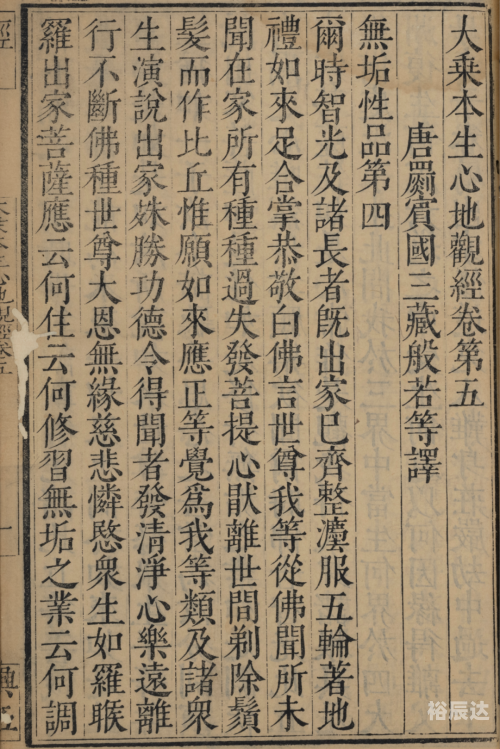 大乘本生心地觀經卷第五
唐罽賓國三藏般若等譯
無垢性品第四
爾時智光及諸長者旣出家已齊整灋服五輪著地
禮如來足合掌恭敬白佛言世尊我等從佛聞所未
聞在家所有種種過失發菩提心猒離世間剃除鬚
髮而作比丘惟願如來應正等覺爲我等類及諸衆
生演說出家姝勝功德令得聞者發清淨心樂遠離
行不斷佛種世尊大恩無緣慈悲憐愍衆生如羅睺
羅出家菩薩應云何住云何修習無垢之業云何調
裕辰达